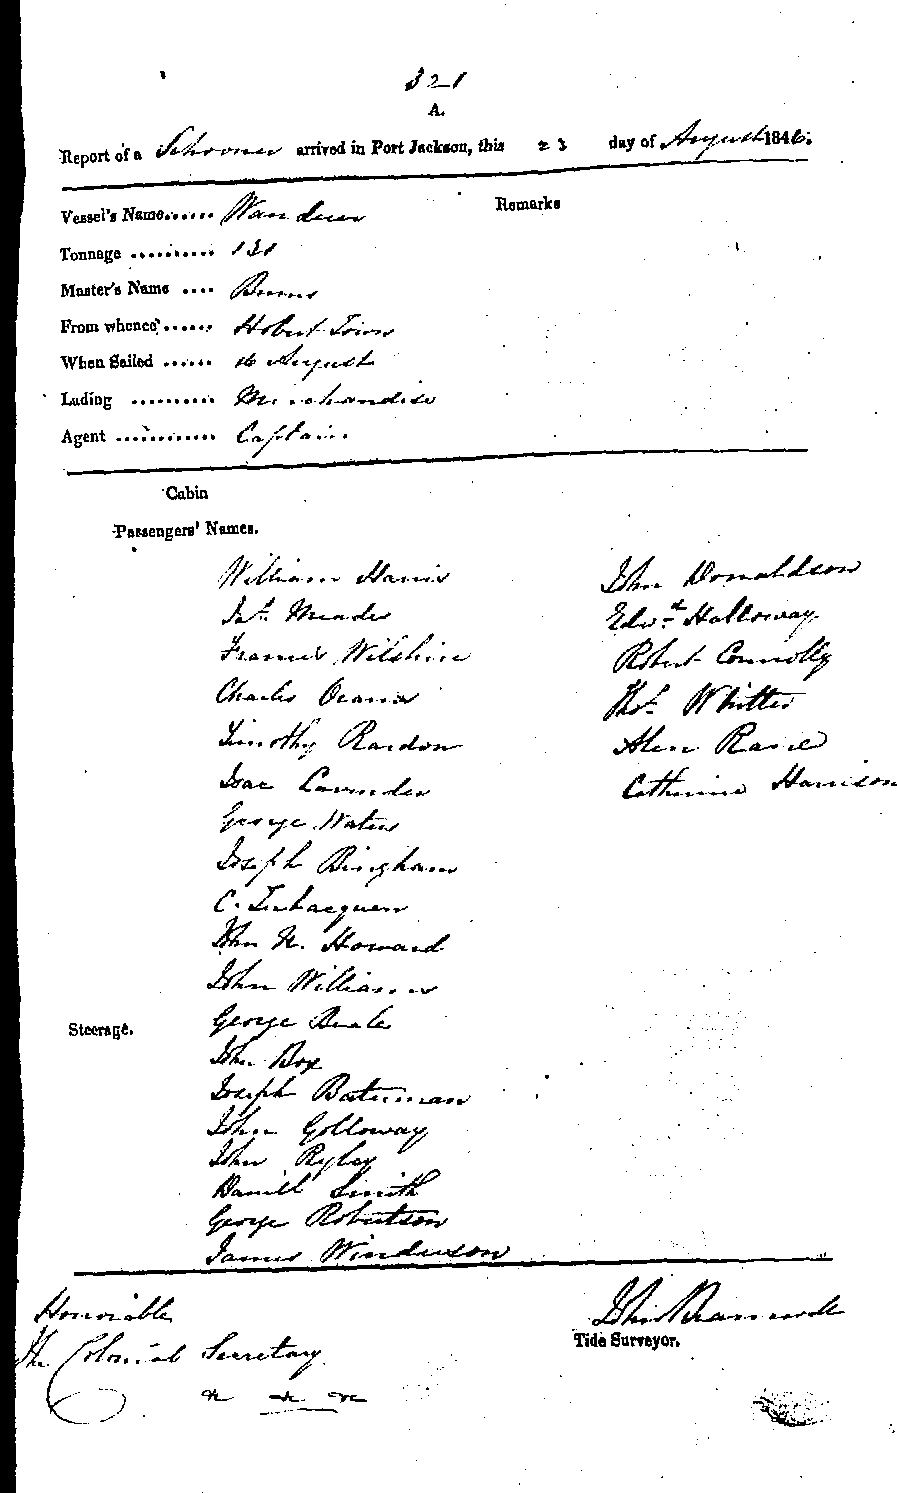 321
A.
Report of a Schooner arrived in Port Jackson, this 23 day of August 1846.
Vessel's Name...... Wanderer
Remarks
Tonnage .......... 131
Master's Name .... Burns
From whence ...... Hobart Town
When Sailed ...... 16 August
Lading .......... Merchandise
Agent ............ Captain
Cabin
Passengers' Names.
William Harris
Jas. Meader
Francis Wilshire
Charles
Timothy Reardon
Isac Lavender
George Waters
Joseph Bingham
C.
John N. Howard
John Williams
Steerage. George Beale
John Box
Joseph Bateman
John Golloway
John Ryley
Daniel Smith
George Robertson
James Winderson
John Donaldson
Edwd. Halloway
Robert Connolly
Thos. Whitter
Alen
Catherine Harrison
Honorable
The Colonial Secretary
John
Tide Surveyor.